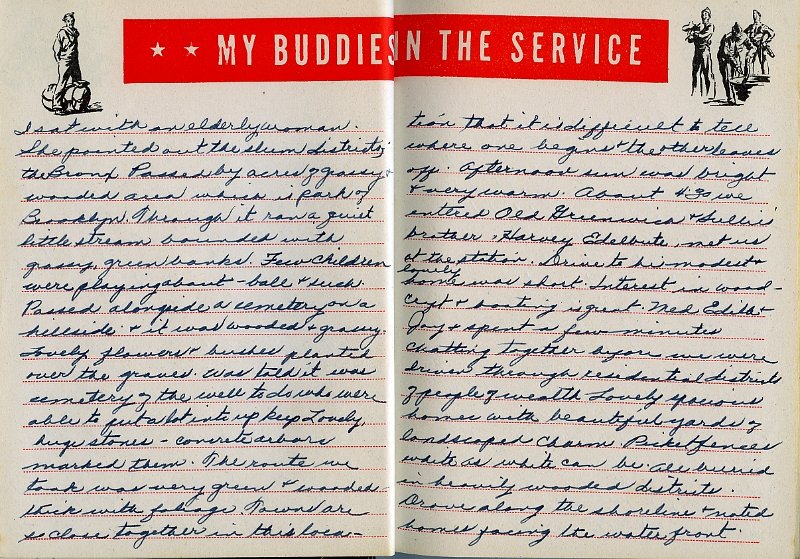 ★ ★ MY BUDDIES IN THE SERVICE
I sat with an elderly woman.
She pointed out the slum districts,
the Bronx. Passed by acres of grassy &
wooded area which is Park of
Brooklyn. Through it ran a quiet
little stream bounded with
grassy, green banks. Few children
were playing about - ball & such.
Passed alongside a cemetery on a
hillside & it was wooded & grassy.
Lovely flowers & bushes planted
over the graves. Was told it was
cemetery of the well to do who were
able to put a lot into up keep. Lovely,
huge stones - concrete arbors
marked them. The route we
took was very green & wooded
thick with foliage. Towns are
so close together in this loca-
tion that it is difficult to tell
where one begins & the other leaves
off. Afternoon sun was bright
& very warm. About 4:30 we
entered Old Greenwich &
brother, Harvey Edelbute, met us
at the station. Drive to his modest &
lovely
home was short. Interest in wood-
craft & boating is great. Met Edith &
Joy & spent a few minutes
chatting together before we were
driven through residential districts
of people of wealth. Lovely spacious
homes with beautiful yards of
landscaped charm. Picket fences
white as white can be. All buried
in heavily wooded district.
Drove along the shoreline & noted
homes facing the water front